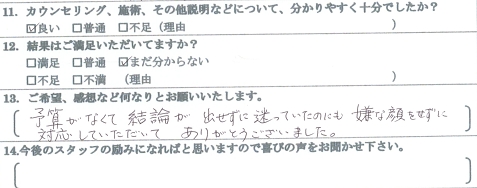 11. カウンセリング、施術、その他説明などについて、分かりやすく十分でしたか?
☑良い □普通 □不足（理由　　　）
12. 結果はご満足いただいてますか?
□満足 □普通 ☑まだ分からない
□不足 □不満 （理由　　　）
13. ご希望、感想など何なりとお願いいたします。
予算がなくて 結論が 出せずに 迷っていたのにも 嫌な顔をせずに
対応していただいて ありがとうございました。
14.今後のスタッフの励みになればと思いますので喜びの声をお聞かせ下さい。